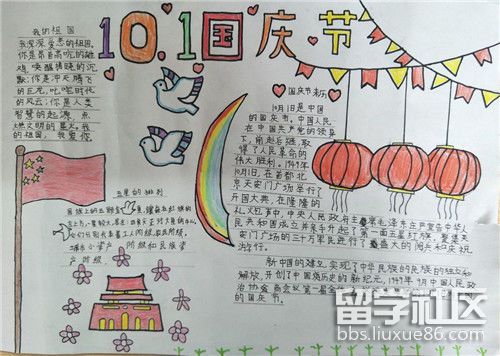 10.1国庆节
我的祖国
我深深爱恋的祖国。
你是昂首高吭的雄
鸡,唤醒拂晓的沉
默;你是冲天腾飞
的巨龙,叱咤时代
的风云;你是人类
智慧的起源,点
燃文明的星火。我
的祖国,我爱你
国庆节来历
10月1日是中国
的国庆节。中国人民
在中国共产党的领导
下,前赴后继,取
得了人民革命的
伟大胜利。1949年
10月1日,在首都北
京天安门广场举行了
开国大典,在隆隆的
礼炮声中,中央人民政府主席毛泽东庄严宣告中华人
民共和国成立并亲手升起了第一面五星红旗。聚集天
安门广场的三十万军民进行了盛大的阅兵和庆祝
游行。
新中国的建立实现了中华民族的民族的独立和
解放,开创了中国历史的新纪元。1949年9月中国人民政
的国庆节。
五星的排列
产阶级
留学社区
bbs.liuxue86.com